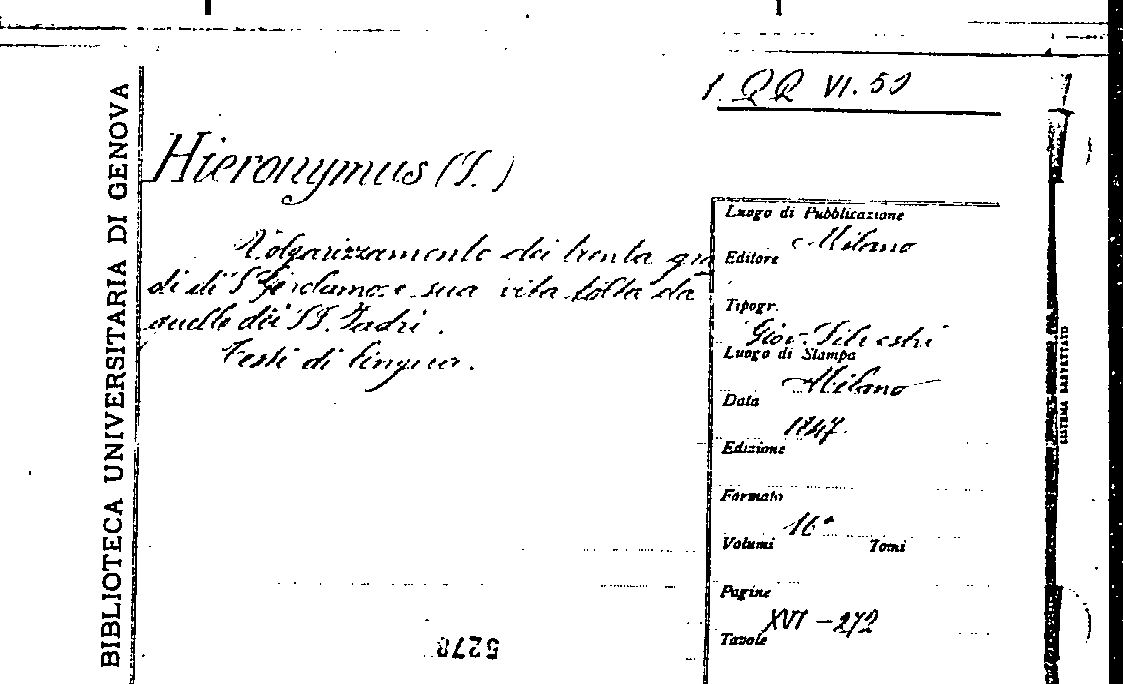 1 QQ VI. 50
BIBLIOTECA UNIVERSITARIA DI GENOVA
Hieronymus (S.)
Volgarizzamento dei trenta gra
di di S Girolamo e sua vita tolta da
quelle dei SS. Padri.
Testi di lingua.
Luogo di Pubblicazione
Milano
Editore
Tipogr.
Giov. Silvestri
Luogo di Stampa
Milano
Data
1847
Edizione
Formato
16°
Volumi Tomi
Pagine
XVI - 272
Tavole
5278